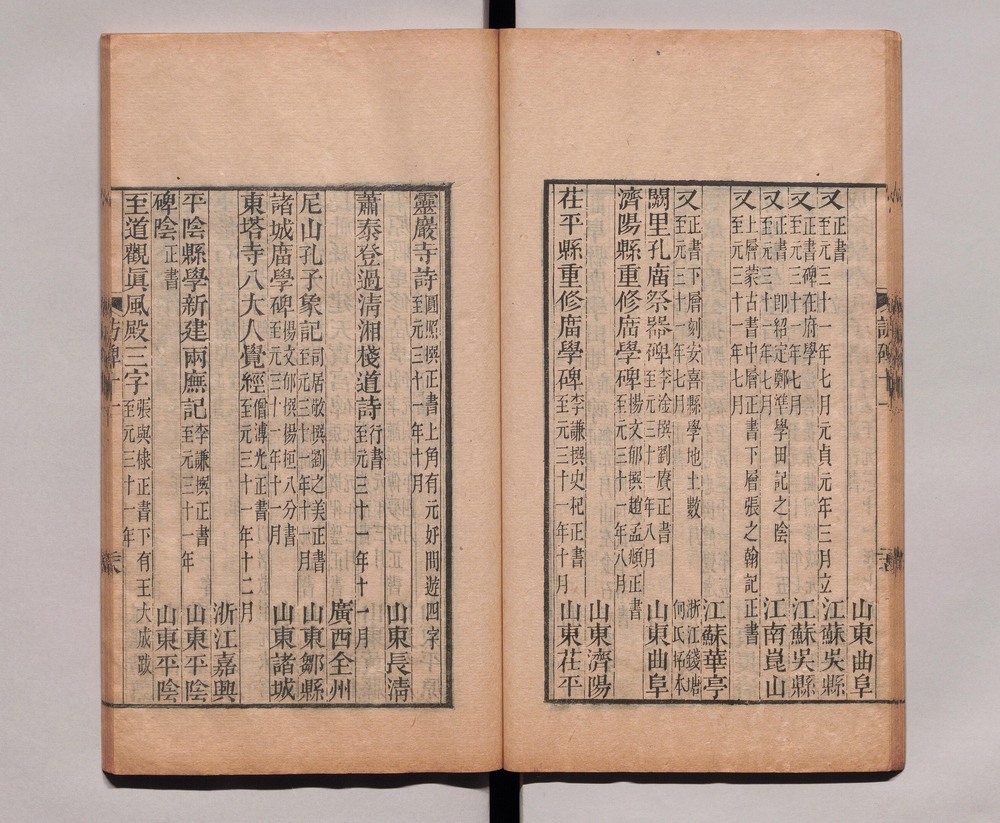 又正書
至元三十一年七月元貞元年三月立
山東曲阜
又正書碑在府學
至元三十一年七月
江蘇吳縣
又正書 即紹定鄭準學田記之陰
至元三十一年七月
江蘇吳縣
又上層蒙古書中層正書下層張之翰記正書
至元三十一年七月
江南崑山
江蘇華亭
又正書下層刻安喜縣學地土數
至元三十一年七月
浙江錢塘
何氏拓本
闕里孔廟祭器碑李淦撰劉賡正書
至元三十一年八月
山東曲阜
濟陽縣重修廟學碑楊文郁撰趙孟頫正書
至元三十一年八月
山東濟陽
茌平縣重修廟學碑李謙撰史杞正書
至元三十一年十月
山東茌平
訪碑十一
靈巖寺詩圓照撰正書上角有元好問遊四字
至元三十一年十月
山東長清
蕭泰登過清湘棧道詩行書
至元三十一年十一月
廣西全州
尼山孔子象記司居敬撰劉之美正書
至元三十一年十一月
山東鄒縣
諸城廟學碑楊文郁撰楊桓八分書
至元三十一年十一月
山東諸城
東塔寺八大人覺經僧溥光正書
至元三十一年十二月
浙江嘉興
平陰縣學新建兩廡記李謙撰正書
至元三十一年
山東平陰
碑陰正書
山東平陰
至道觀眞風殿三字張與棣正書下有王大成跋
至元三十一年
訪碑十一